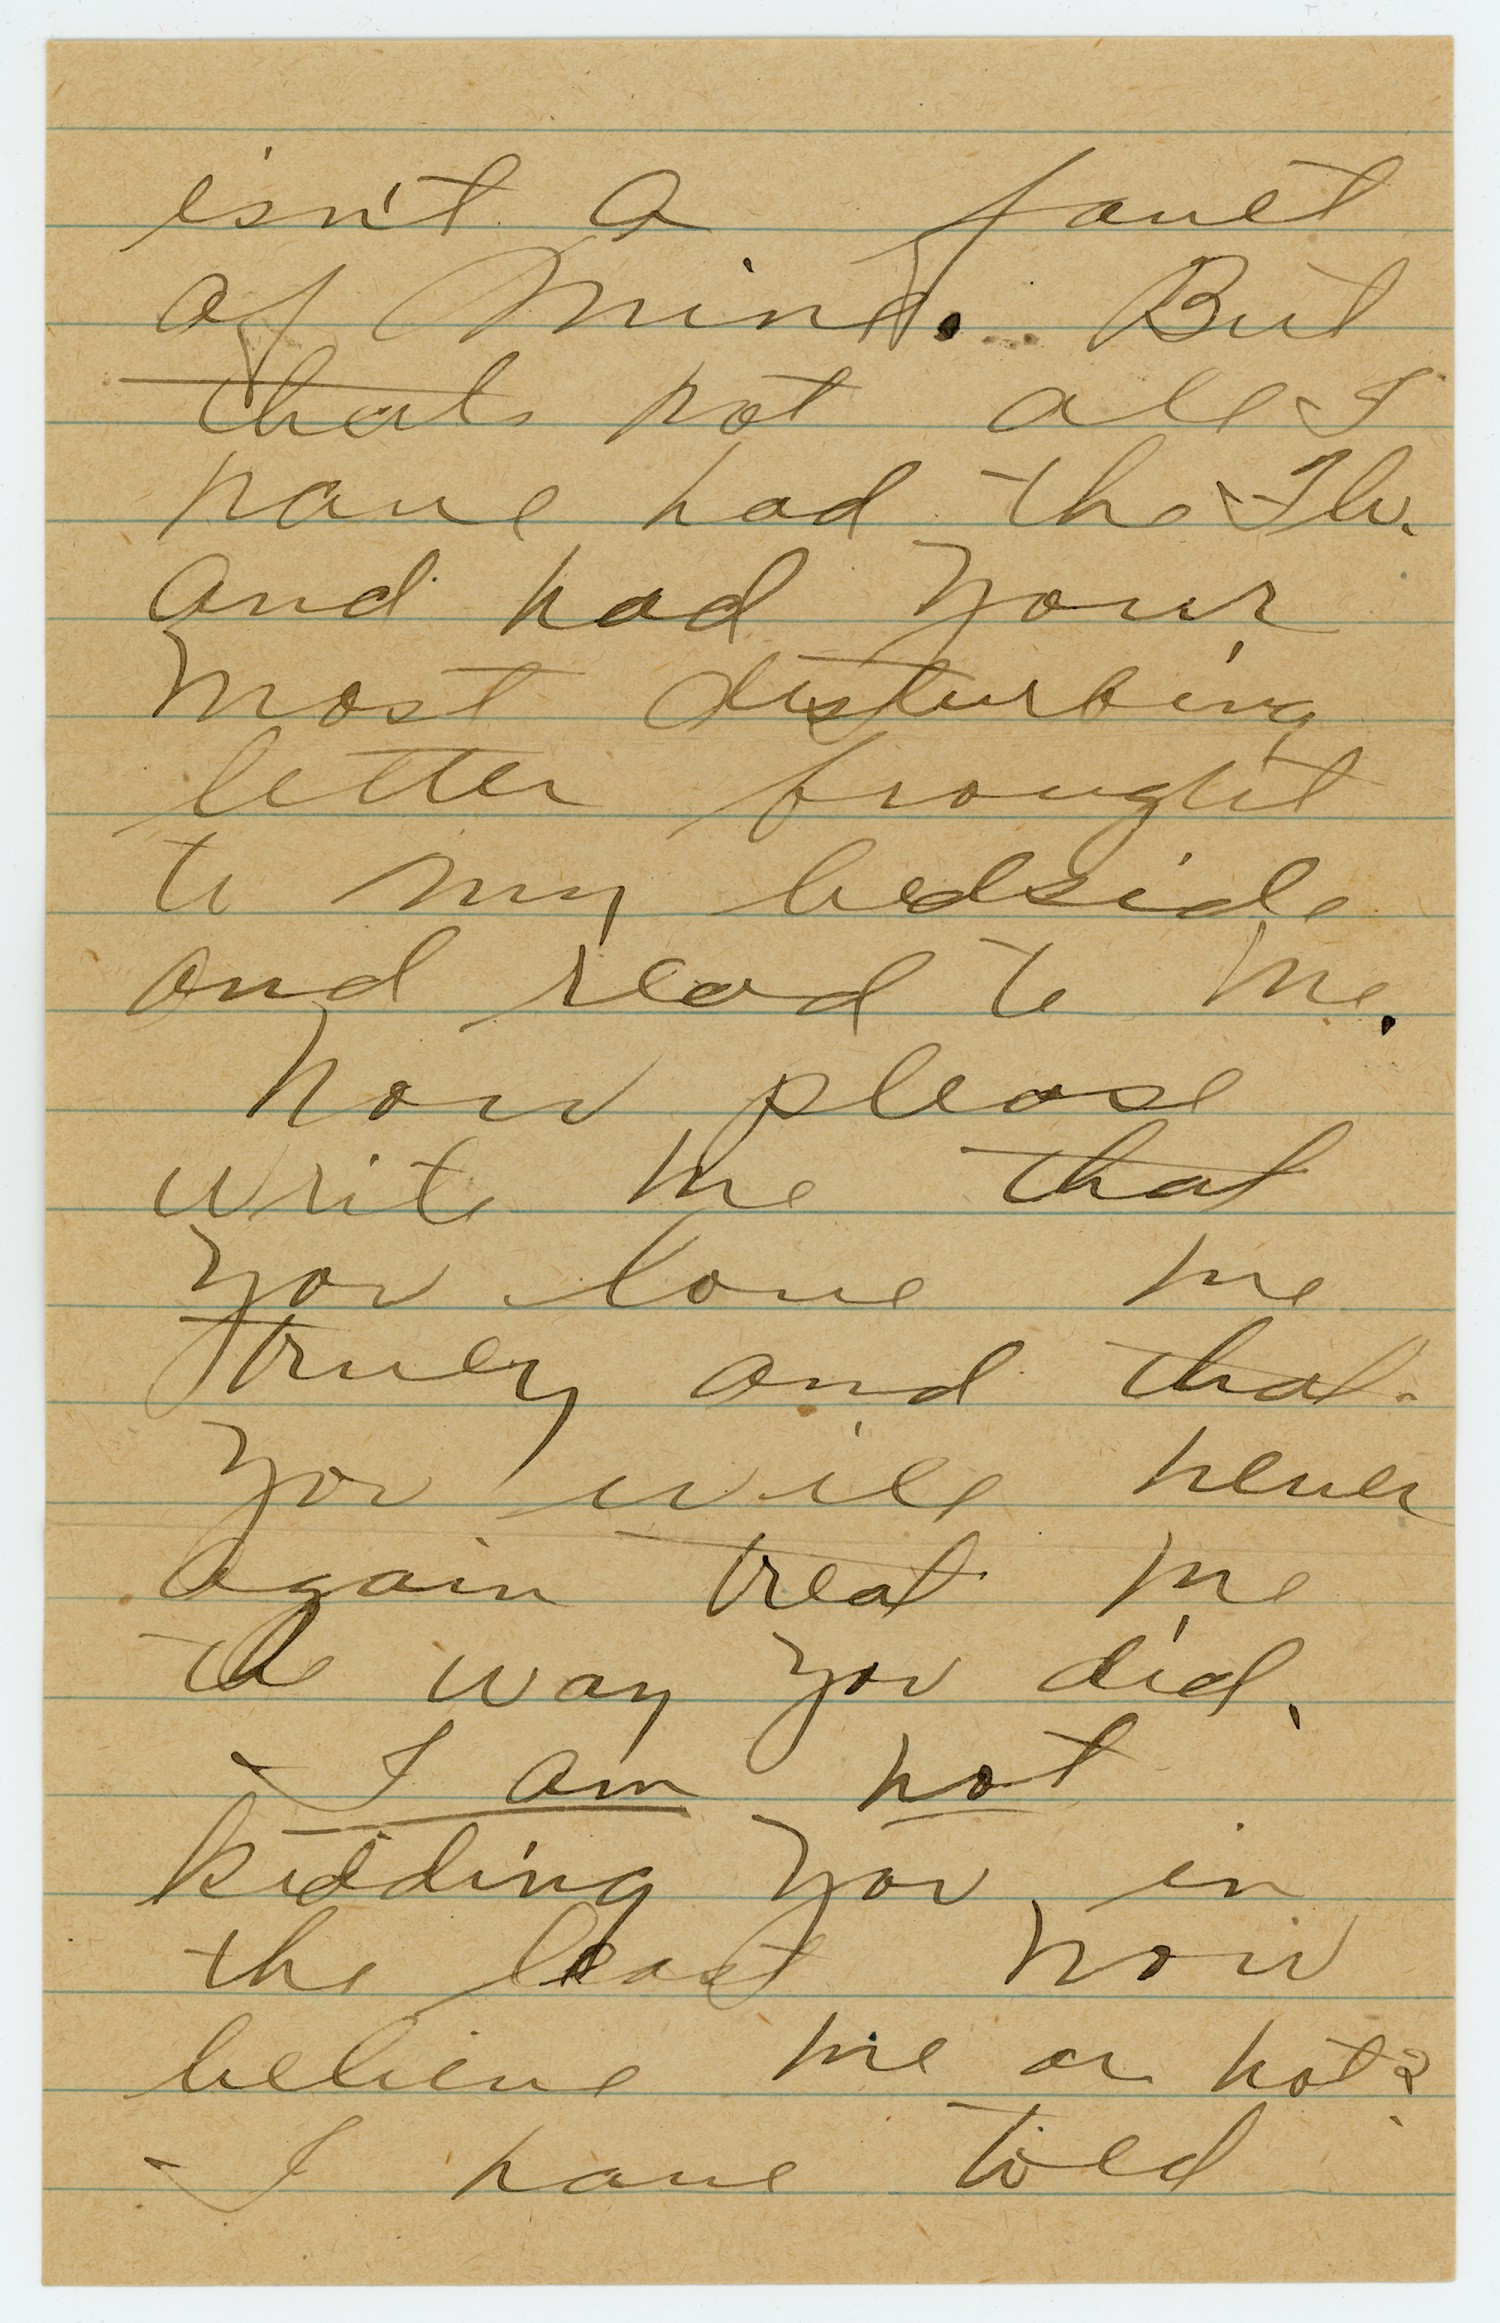 isn't a fault
of mind. But
thats not all I
have had the Flu.
and had your
most disturbing
letter brought
to my bedside
and read to me.
Now please
write me that
you love me
truly and that
you will never
again treat me
the way you did.
I am not
kidding you in
the least now
believe me or not?
I have told